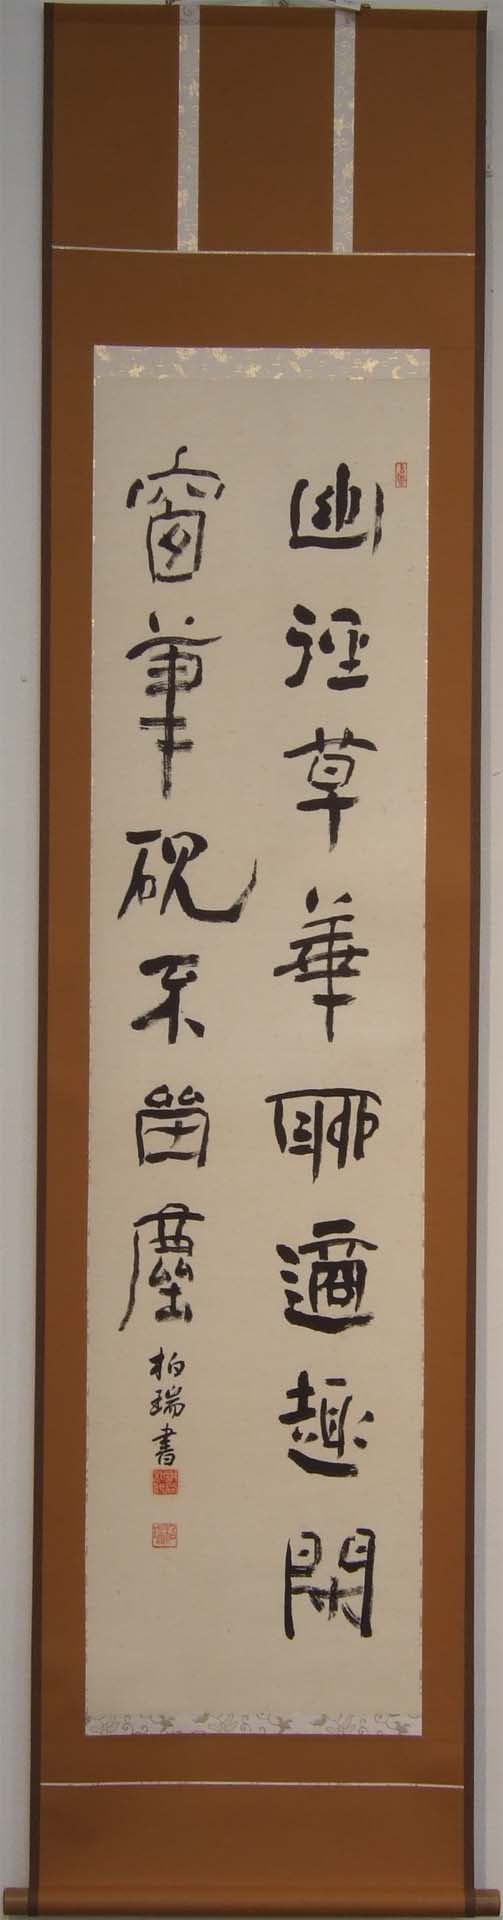 幽徑草華聊適趣閑
窗筆硯不留塵
柏瑞書